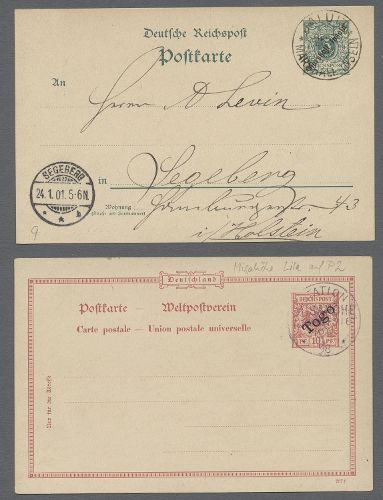 Deutsche Reichspost
Postkarte
JALUIT
MARSHALL-INSELN
An
Herrn A Levin
in Segeberg
Wohnung
(Straße und Hausnummer)
43
i/Holstein
SEGEBERG
24.1.01.5-6N.
* * b
9
Deutschland
Misahöhe Lila auf P2
Postkarte – Weltpostverein
Carte postale – Union postale universelle
REICHSPOST
Togo
10
STATION
MISAHÖHE
Nur für die Adresse